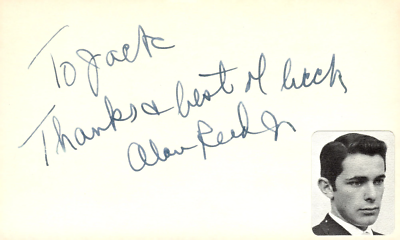 To Jack
Thanks & best of luck
Alan Reed Jr